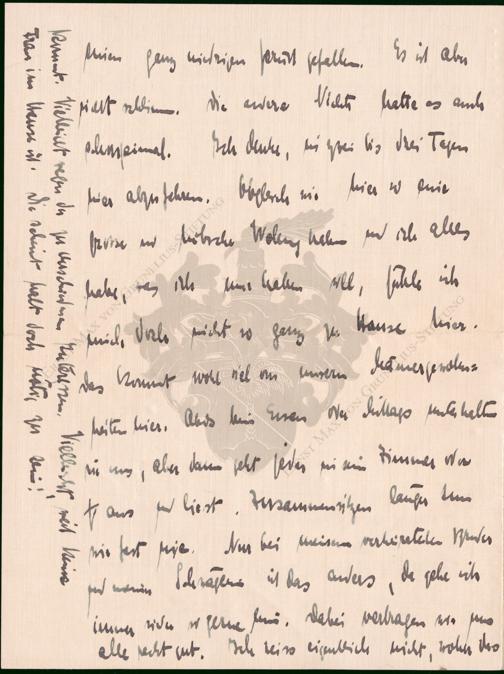 einen ganz niedrigen gefallen. Es ist aber
nicht schlimm. Die andere Nichte hatte es auch
schon einmal. Ich denke, in zwei bis drei Tagen
hier abzufahren. Obgleich wir hier so eine
grosse und hübsche Wohnung haben und ich alles
habe, was ich nur haben will, fühle ich
mich doch nicht so ganz zu Hause hier.
Das kommt wohl viel von unseren
heiten hier. Nach dem Essen oder Mittags unterhalten
wir uns, aber dann geht jeder in sein Zimmer oder
aus und liest. Zusammensitzen länger tun
wir fast nie. Nur bei meinem verheirateten Bruder
und meiner Schwägerin ist das anders, da gehe ich
immer wieder so gerne hin. Dabei vertragen wir uns
alle recht gut. Ich weiss eigentlich nicht, woher das
kommt. Vielleicht wegen der zu verschiedenen Interessen. Vielleicht, weil keine
Frau im Hause ist. Die scheint halt doch nötig zu sein!
ERNST MAX VON GRUNELIUS-STIFTUNG